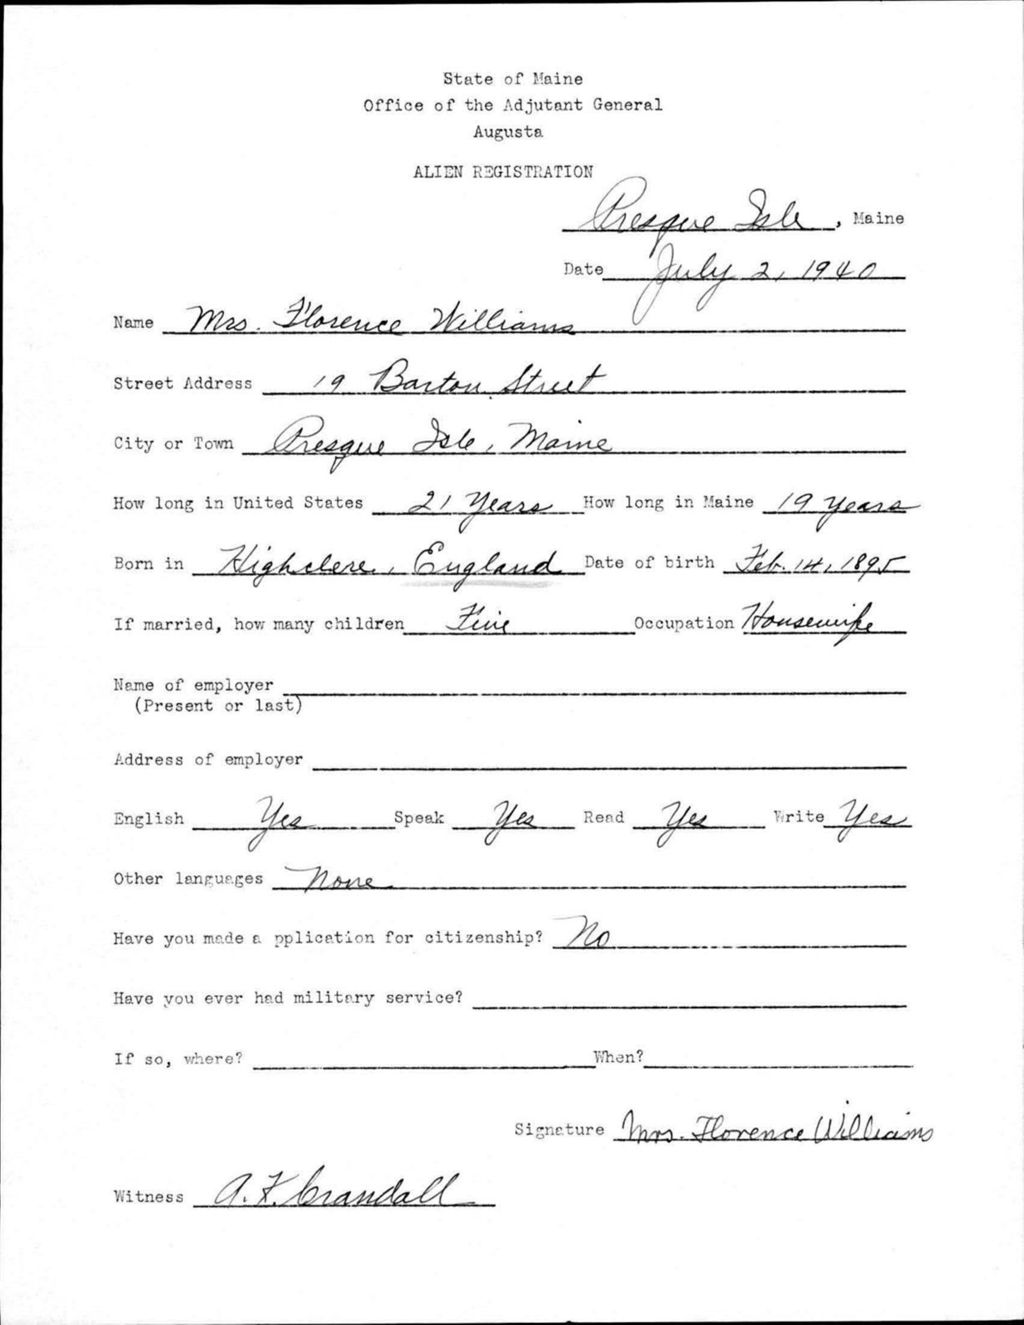 State of Maine
Office of the Adjutant General
Augusta
ALIEN REGISTRATION
Presque Isle, Maine
Date July 2, 1940
Name Mrs. Florence Williams
Street Address 19 Barton Street
City or Town Presque Isle, Maine
How long in United States 21 Years How long in Maine 19 years
Born in Highclere, England Date of birth Feb. 14, 1895
If married, how many children Five Occupation Housewife
Name of employer
(Present or last)
Address of employer
English Yes Speak Yes Read Yes Write Yes
Other languages None
Have you made a pplication for citizenship? No
Have you ever had military service?
If so, where? When?
Signature Mrs. Florence Williams
Witness A. F. Crandall